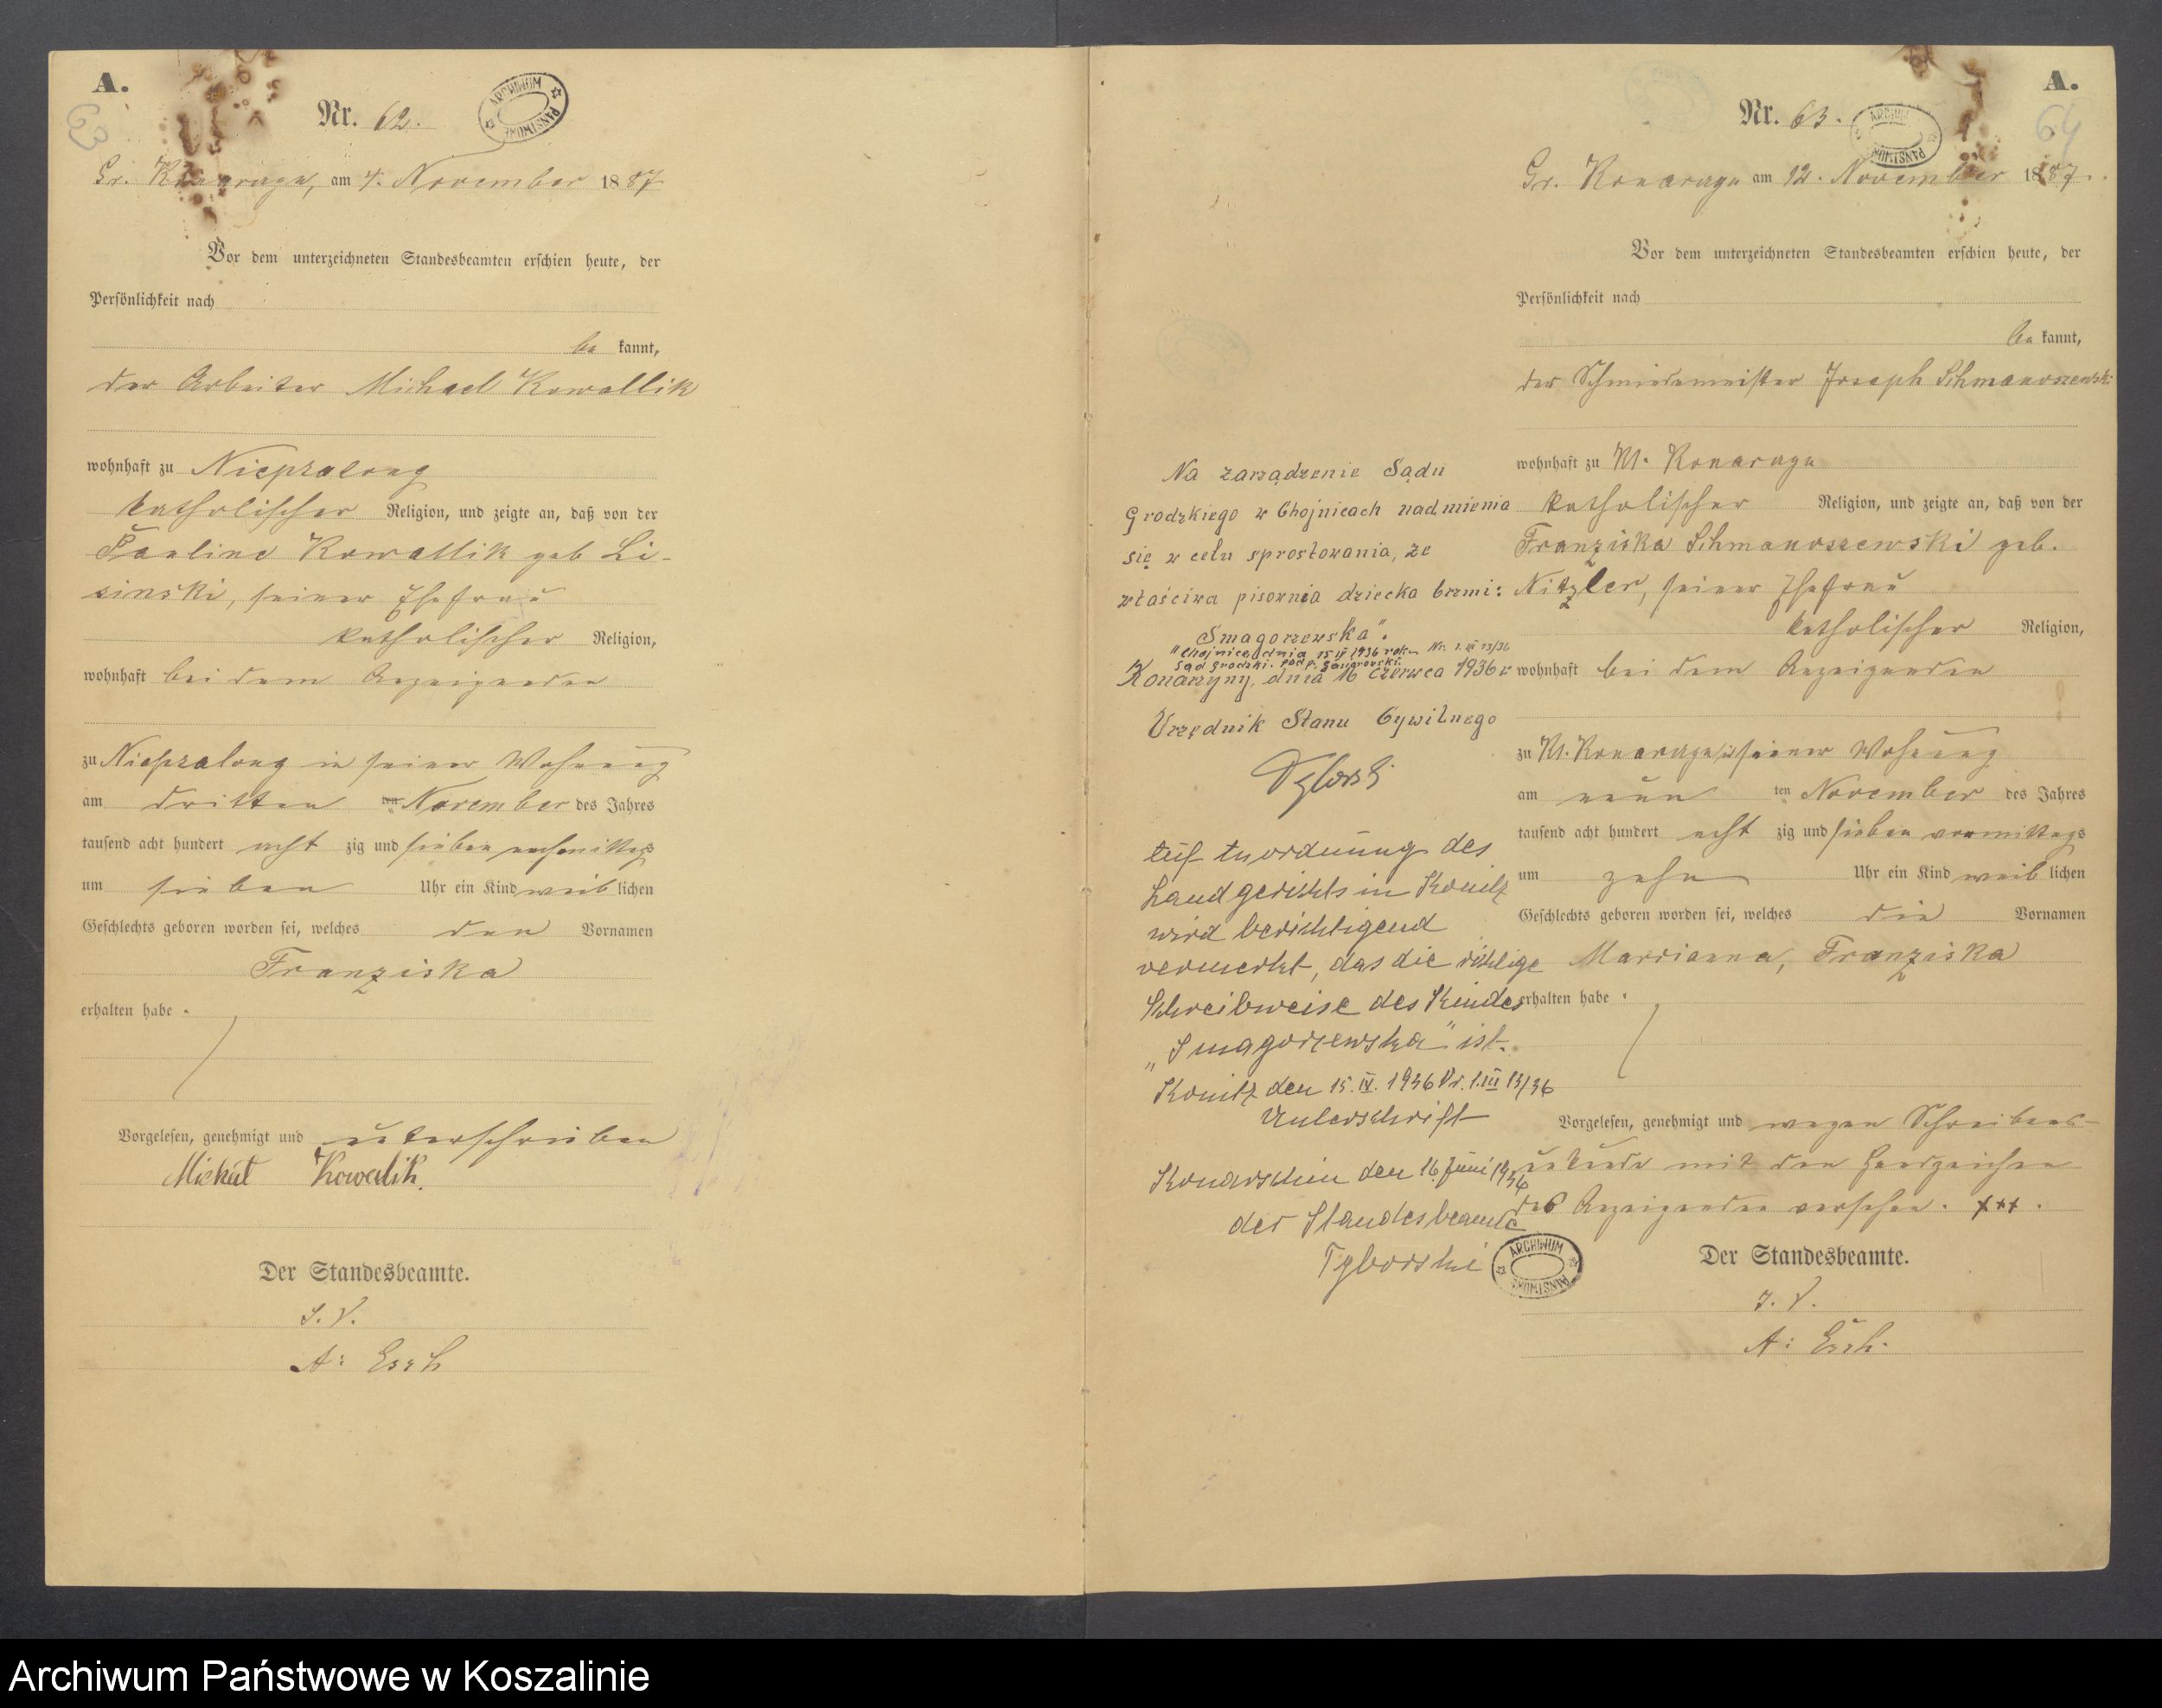 A.
63
Nr. 62.
ARCHIWUM PAŃSTWOWE
Gr. Konarczyn, am 4. November 1887
Vor dem unterzeichneten Standesbeamten erschien heute, der
Persönlichkeit nach
be kannt,
der Arbeiter Michael Kowallik
wohnhaft zu Niepszalong
katholischer Religion, und zeigte an, daß von der
Pauline Kowallik geb Li-
sinski, seiner Ehefrau
katholischer Religion,
wohnhaft bei dem Anzeigenden
zu Niepszalong in seiner Wohnung
am dritten ten November des Jahres
tausend acht hundert acht zig und sieben nachmittags
um sieben Uhr ein Kind weib lichen
Geschlechts geboren worden sei, welches den Vornamen
Franziska
erhalten habe.
Vorgelesen, genehmigt und unterschrieben
Michał Kowalik.
Der Standesbeamte.
I. V.
A: Esch
A.
64
Nr. 63.
ARCHIWUM PAŃSTWOWE
Gr. Konarczyn am 12. November 1887.
Vor dem unterzeichneten Standesbeamten erschien heute, der
Persönlichkeit nach
be kannt,
der Schmiedemeister Joseph Schmanoszewski
wohnhaft zu Kl. Konarczyn
katholischer Religion, und zeigte an, daß von der
Franziska Schmanoszewski geb.
Nitzler, seiner Ehefrau
katholischer Religion,
wohnhaft bei dem Anzeigenden
zu Kl. Konarczyn in seiner Wohnung
am neun ten November des Jahres
tausend acht hundert acht zig und sieben vormittags
um zehn Uhr ein Kind weib lichen
Geschlechts geboren worden sei, welches die Vornamen
Marrianna, Franziska
erhalten habe.
Vorgelesen, genehmigt und wegen Schreibens-
unkunde mit den Handzeichen
des Anzeigenden versehen. +++.
Der Standesbeamte.
I. V.
A: Esch.
Na zarządzenie Sądu
Grodzkiego w Chojnicach nadmienia
się w celu sprostowania, że
właściwa pisownia dziecka brzmi:
"Smagorzewska".
Chojnice, dnia 15 IV 1936 rok. Nr. 1. III 13/36
Sąd Grodzki. podp.
Konarzyny, dnia 16 czerwca 1936 r.
Urzędnik Stanu Cywilnego
Tyborski
Auf Anordnung des
Landgerichts in Konitz
wird berichtigend
vermerkt, das die richtige
Schreibweise des Kindes
„Smagorzewska" ist.
Konitz den 15. IV. 1936 Nr. 1. III 13/36
Unterschrift
Konarschin den 16. Juni 1936
der Standesbeamte
Tyborski
ARCHIWUM PAŃSTWOWE
Archiwum Państwowe w Koszalinie